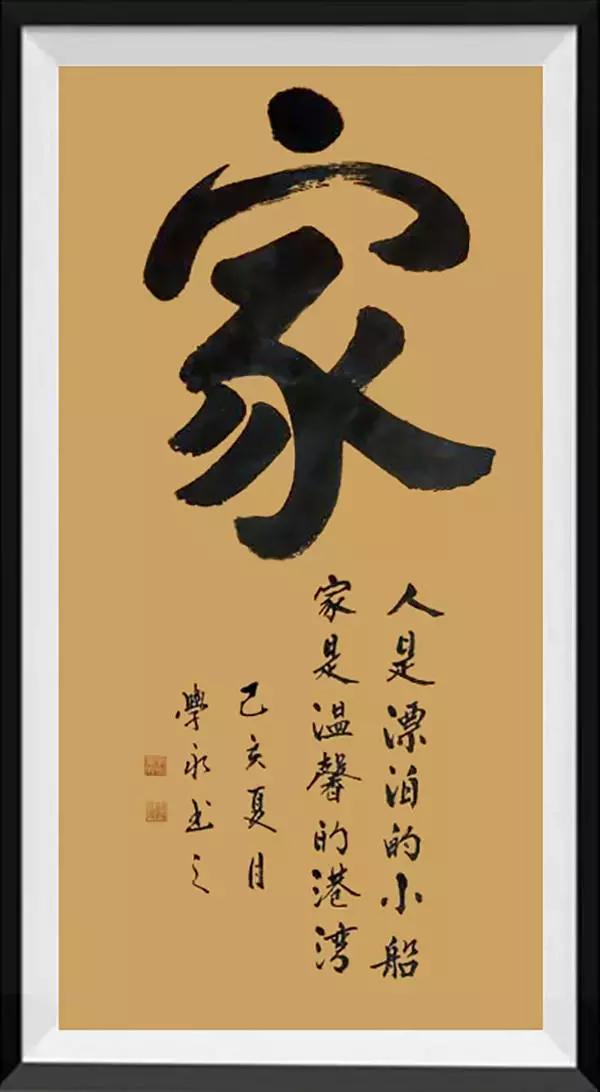 家
人是漂泊的小船
家是温馨的港湾
己亥夏月
學永书之